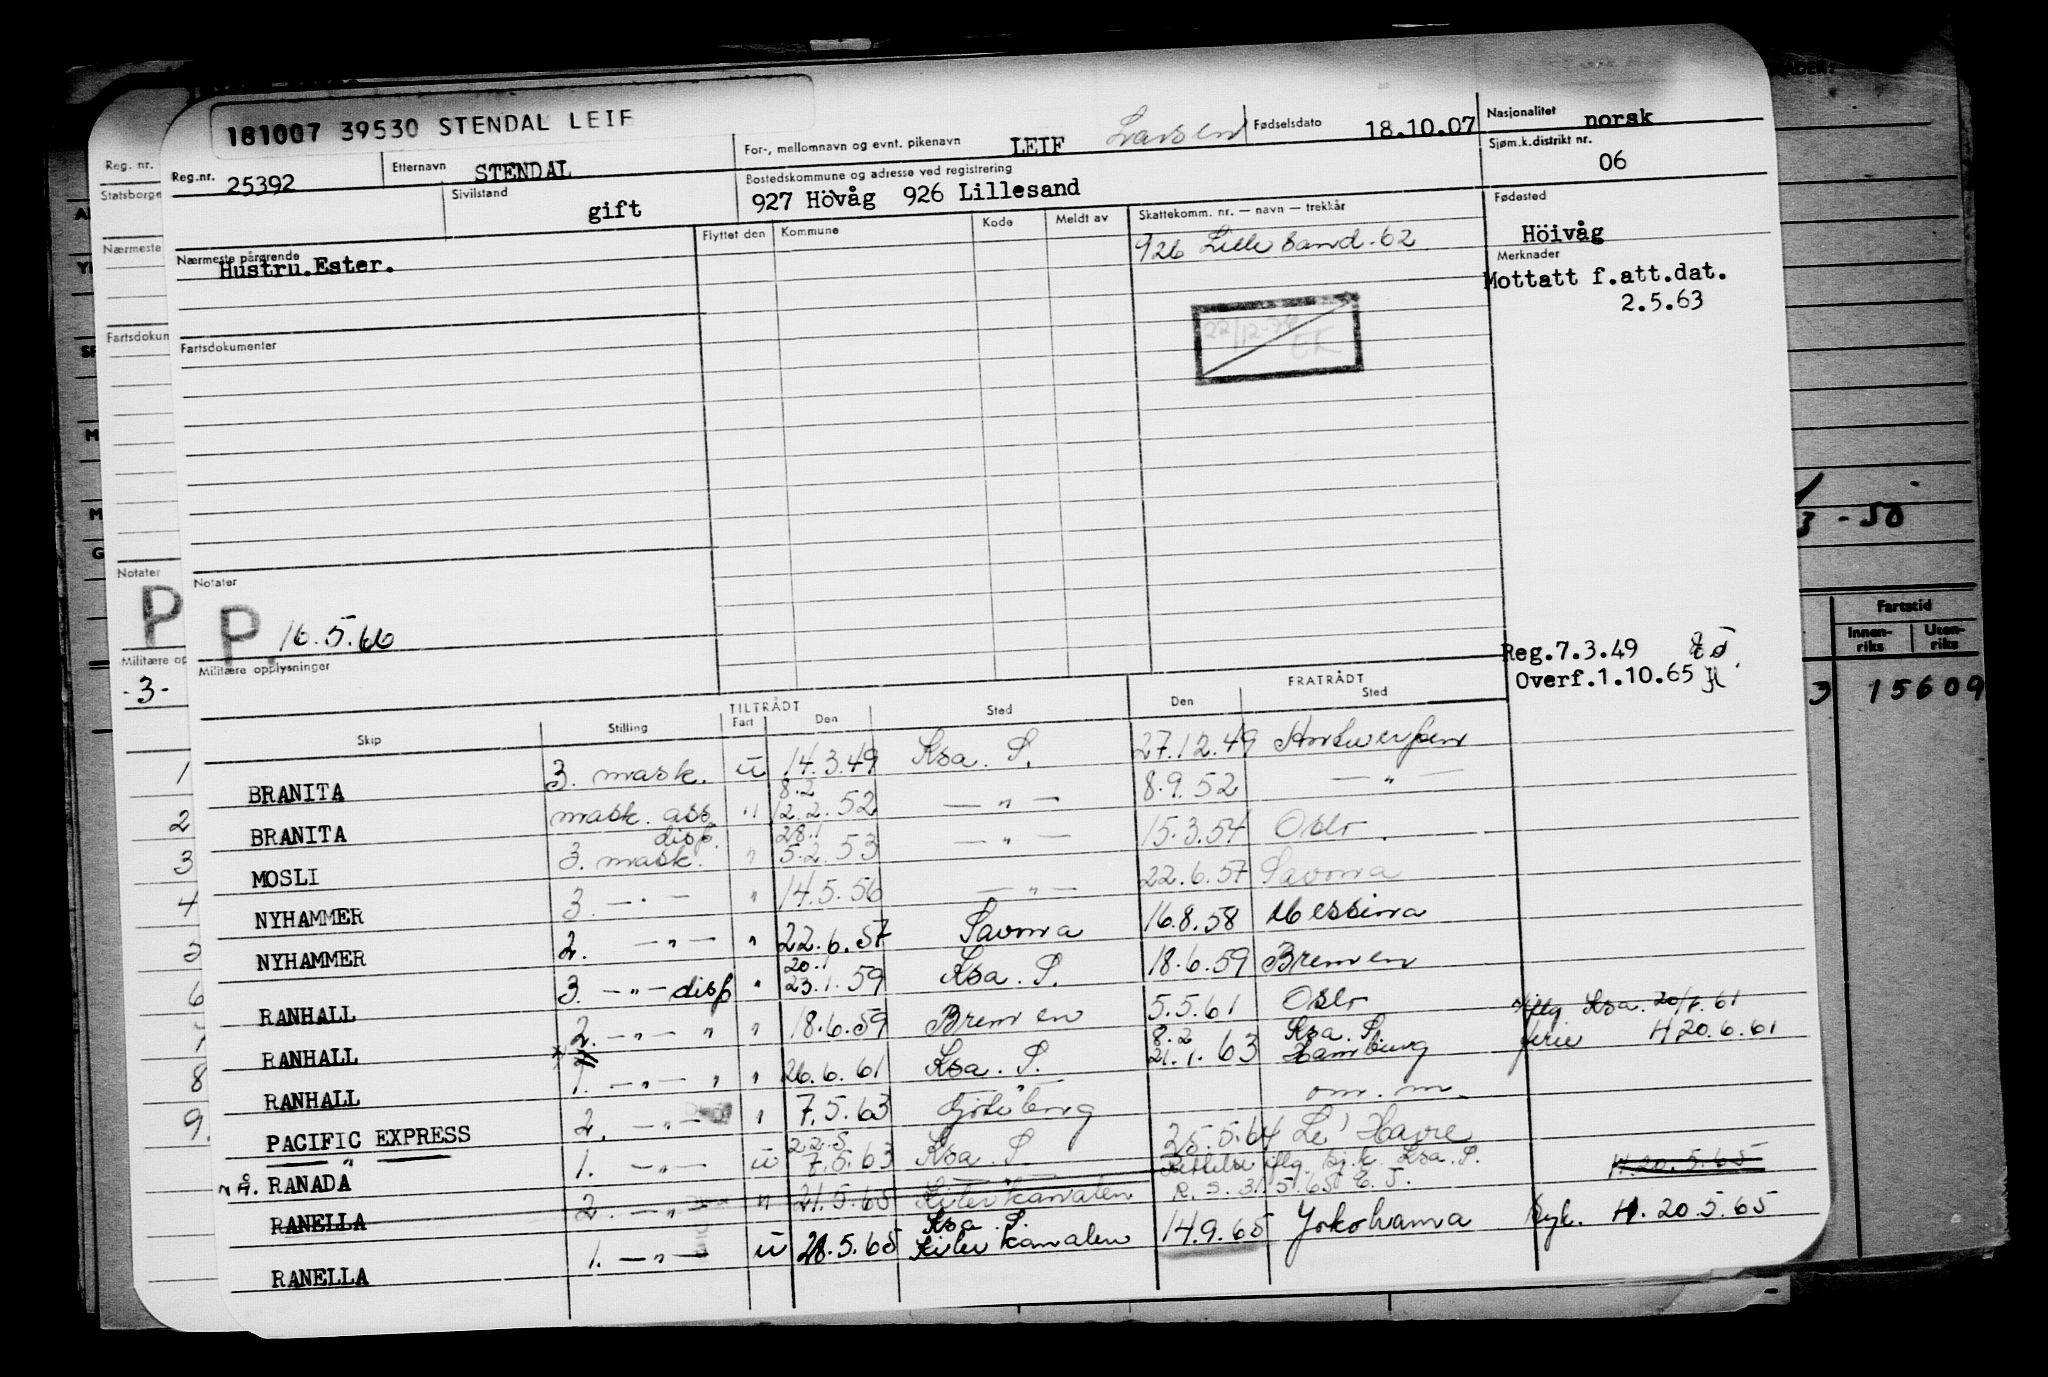 181007 39530 STENDAL LEIF
Reg.nr. 25392
Etternavn STENDAL
For-, mellomnavn og evnt. pikenavn LEIF Larsen
Fødselsdato 18.10.07
Nasjonalitet norsk
Sjøm.k.distrikt nr. 06
Sivilstand gift
Bostedskommune og adresse ved registrering
927 Hövåg 926 Lillesand
Fødested
Höivåg
Nærmeste pårørende
Hustru.Ester.
Flyttet den Kommune Kode Meldt av
Skattekomm. nr. — navn — trekkår
926 Lillesand. 62
Merknader
Mottatt f.att.dat.
2.5.63
Fartsdokumenter
Notater
P. 16.5.66
Militære opplysninger
Reg.7.3.49
Overf.1.10.65
TILTRÅDT FRATRÅDT
Skip Stilling Fart Den Sted Den Sted
BRANITA 3. mask. u 14.3.49 Ksa. S. 27.12.49 Antwerpen
8.2
BRANITA mask. ass. " 12.2.52 — " — 8.9.52 — " —
disp. 28.1
MOSLI 3. mask. " 5.2.53 — " — 15.3.54 Oslo.
NYHAMMER 3. — " — " 14.5.56 — " — 22.6.57 Savona
NYHAMMER 2. — " — " 22.6.57 Savona 16.8.58 Messina
20.1
RANHALL 3. — " — disp " 23.1.59 Ksa. S. 18.6.59 Bremen
RANHALL 2. — " — " " 18.6.59 Bremen 5.5.61 Oslo iflg Ksa. 20/6.61
8.2 Ksa. S.
RANHALL 1. — " — " " 26.6.61 Ksa. S. 21.1.63 Hamburg ferie H 20.6.61
PACIFIC EXPRESS 2. — " — " 7.5.63 Göteborg om. m.
22.5
RANADA 1. — " — u 7.5.63 Ksa. S. 25.5.64 Le Havre
RANELLA 2. — " — " 21.5.65 Kielerkanalen Rettelse iflg. sj.k. Ksa. S. H.20.5.65
R. S. 31.5.65 E. J.
Ksa. S.
RANELLA 1. — " — u 28.5.65 Kielerkanalen 14.9.65 Yokohama Syk. H. 20.5.65
Reg. nr.
Statsborge
Nærmeste
Fartsdokun
Notater
P
Militære op
-3-
1
2
3
4
5
6
7
8
9.
3 - 50
Fartstid
Innen-riks Uten-riks
3 15609